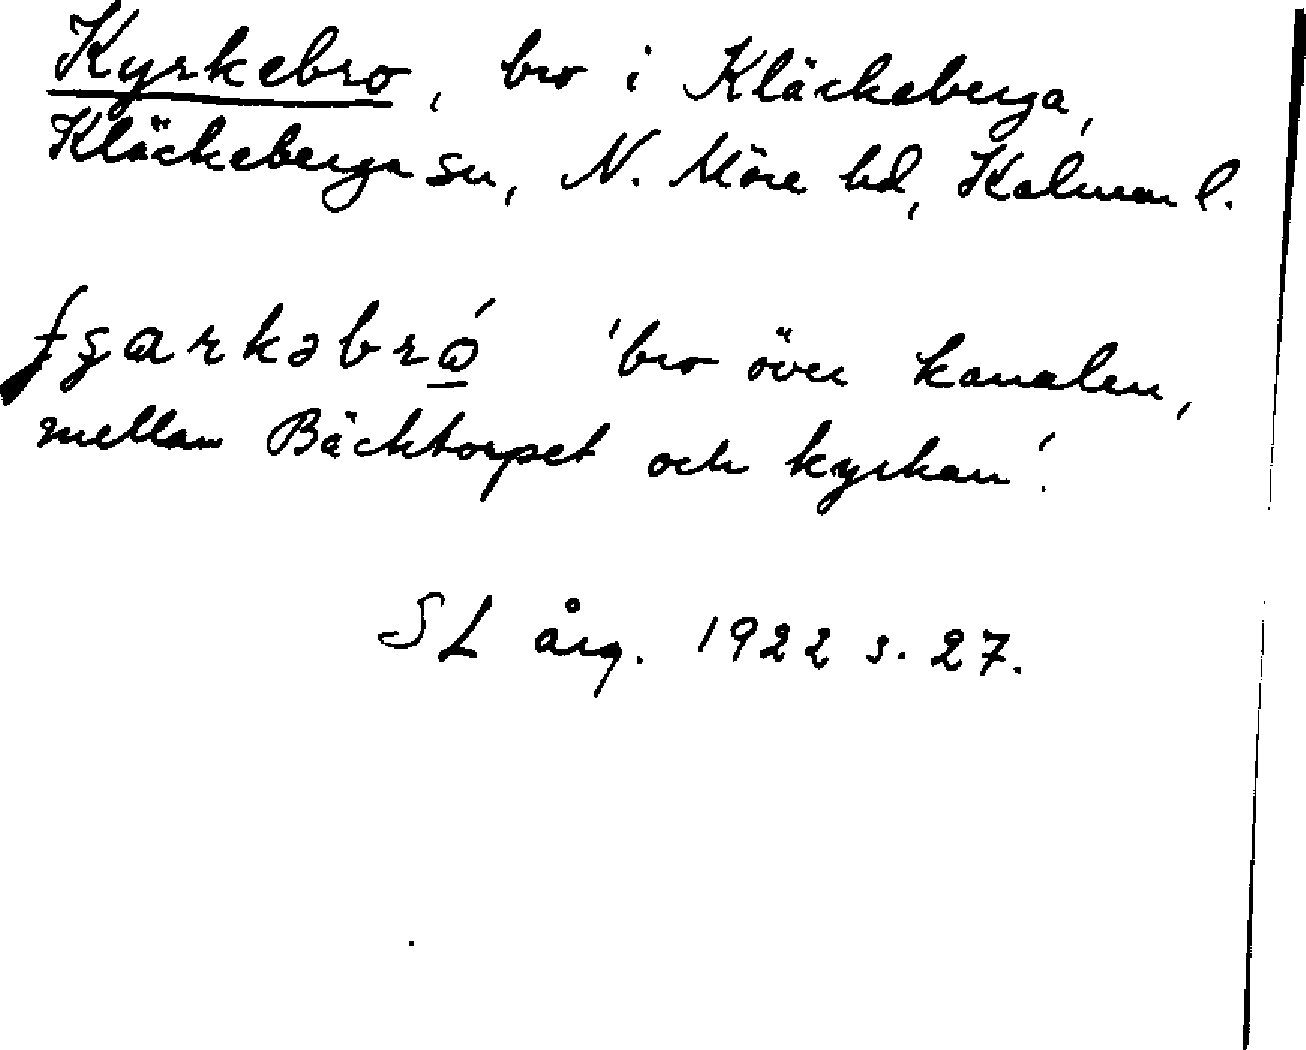 Kyrkebro, bro i Kläckeberga,
Kläckeberga sn, N. Möre hd, Kalmar l.
'bro över kanalen,
mellan Bäcktorpet och kyrkan'.
SL årg. 1922 s. 27.